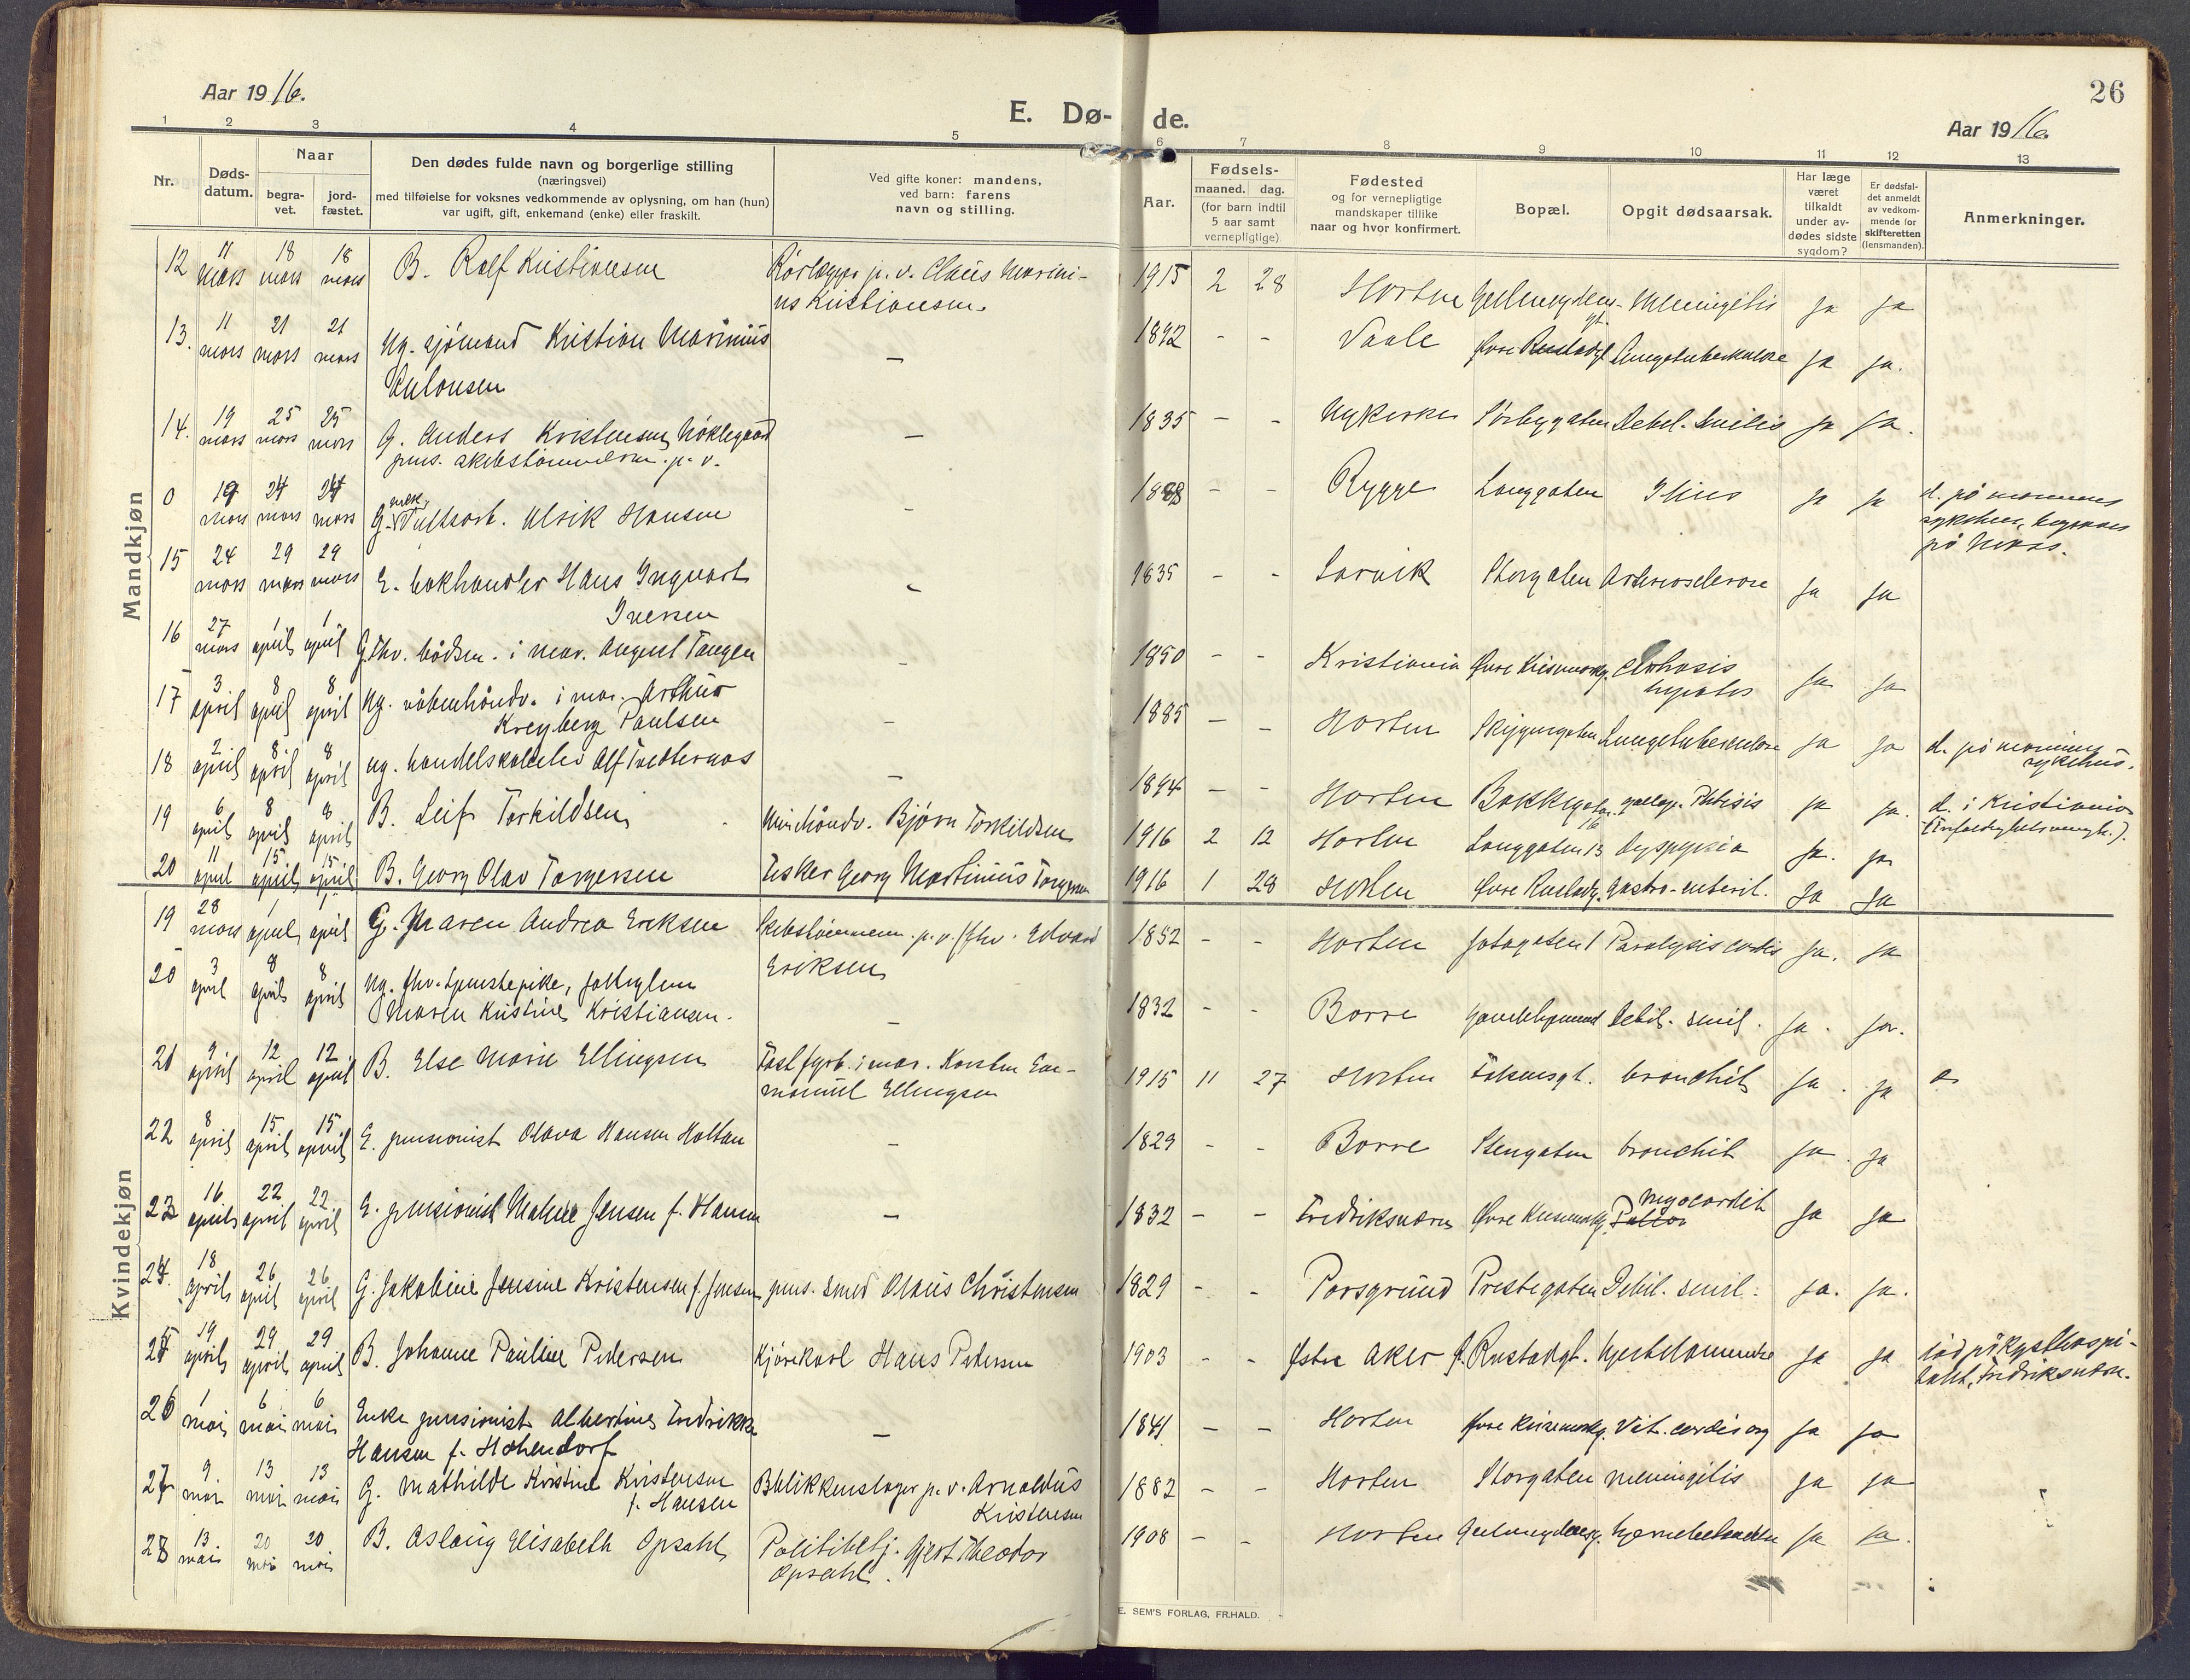 Aar 1916.
E. Dø-
de.
26
Aar 1916.
1 2 3 4 5 6 7 8 9 10 11 12 13
Nr.
Døds-
datum.
Naar
begra-
vet.
jord-
fæstet.
Den dødes fulde navn og borgerlige stilling
(næringsvei)
med tilføielse for voksnes vedkommende av oplysning, om han (hun)
var ugift, gift, enkemand (enke) eller fraskilt.
Ved gifte koner: mandens,
ved barn: farens
navn og stilling.
Aar.
Fødsels-
maaned. dag.
(for barn indtil
5 aar samt
vernepligtige)
Fødested
og for vernepligtige
mandskaper tillike
naar og hvor konfirmert.
Bopæl.
Opgit dødsaarsak.
Har læge
været
tilkaldt
under av-
dødes sidste
sygdom?
Er dødsfal-
det anmeldt
av vedkom-
mende for
skifteretten
(lensmanden).
Anmerkninger.
Mandkjøn
12 11 mars 18 mars 18 mars B. Rolf Kristiansen Rørlægger p. v. Claus Marini-
us Kristiansen 1915 2 28 Horten Meningitis ja ja
13. 11 mars 21 mars 21 mars Ug. sjømand Kristian Marinius
Antonsen — 1892 - - Vaale Øvre Rustadgt. Lungetuberkulose ja ja.
14. 19 mars 25 mars 25 mars G. Anders Kristensen
pens. skibstømmerm. p. v. — 1835 - - Nykirke Sørbygaten Debil. senilis ja ja.
0 19 mars 24 mars 24 mars G. Ulrik Hansen - 1888 - - Rygge Langgaten Ileus ja ja d. på marinens
sykehus, begraves
på
15 24 mars 29 mars 29 mars E. bokhandler Hans Ingvart
Iversen - 1835 - - Larvik Storgaten Arteriosclerose ja ja
16 27 mars 1 april 1 april G. fhv. bådsm. i mar. August Tangen - 1850 - - Kristiania Øvre Keisemarkg. Cirrhosis
hepatis ja ja
17 3 april 8 april 8 april Ug. våbenhåndv. i mar. Arthur
Kreyberg Paulsen - 1885 - - Horten Skippergaten Lungetuberculose ja ja d. på marinens
sykehus.
18 2 april 8 april 8 april ug. handelsskoleelev Alf Tvedternæs — 1894 - - Horten Bakkegaten Phtisis ja ja. d. i Kristiania
19 6 april 8 april 8 april B. Leif Torkildsen Minehåndv. Bjørn Torkildsen 1916 2 12 Horten Langgaten 13 dyspepsia ja. ja
20 11 april 15 april 15 april B. Georg Olav Torgersen Fisker Georg Martinius Torgersen 1916 1 28 Horten Øvre Rustadg. Gastro-enterit. Ja Ja
Kvindekjøn
19 28 mars 1 april 1 april G. Maren Andrea Eriksen Skibstømmerm. p. v. fhv. Edvard
Eriksen 1852 - - Horten Jotagaten 1 Paralysis cordis ja. ja
20 3 april 8 april 8 april Ug. fhv. tjenestepike, fattiglem
Maren Kristine Kristiansen. — 1832 - - Borre Gamlehjemmet Debil. senil. ja. ja.
21 9 april 12 april 12 april B. Else Marie Ellingsen Fast fyrb. i mar. Karsten Em-
manuel Ellingsen 1915 11 27 Horten Falkensgt. bronchit ja. ja
22 8 april 15 april 15. april E. pensionist Olava Hansen Holtan — 1829 - - Borre Stengaten bronchit ja. ja
23 16 april 22 april 22. april E. pensionist Mathea Jensen f. Hansen — 1832 - - Fredriksværn Øvre Keisemarkg. Myocardit ja ja
24. 18 april 26 april 26 april G. Jakobine Jensine Kristensen f. Jensen pens. smed Olaus Christensen 1829 - - Porsgrund Prestegaten Debil. senil. ja. ja.
25 19 april 29 april 29 april B. Johanne Pauline Pedersen Kjørekarl Hans Pedersen 1903 - - Østre Aker Ø. Rustadgt. ja ja død på Kysthospi-
talet, Fredriksværn.
26 1 mai 6 mai 6 mai Enke pensionist Albertine Fredrikke
Hansen f. Hohendorf — 1841 - - Horten Øvre Keisemarkg. Vit. cordis org ja ja
27 9. mai 13 mai 13 mai G. Mathilde Kristine Kristensen
f. Hansen Blikkenslager p. v. Arnoldus
Kristensen 1882 - - Horten Storgaten meningitis ja ja
28 13 mai 20 mai 20 mai B. Aslaug Elisabeth Opsahl Politibetj. Gjert Theodor
Opsahl. 1908 - - Horten hjernebetændelse ja ja.
E. SEM'S FORLAG, FR.HALD.